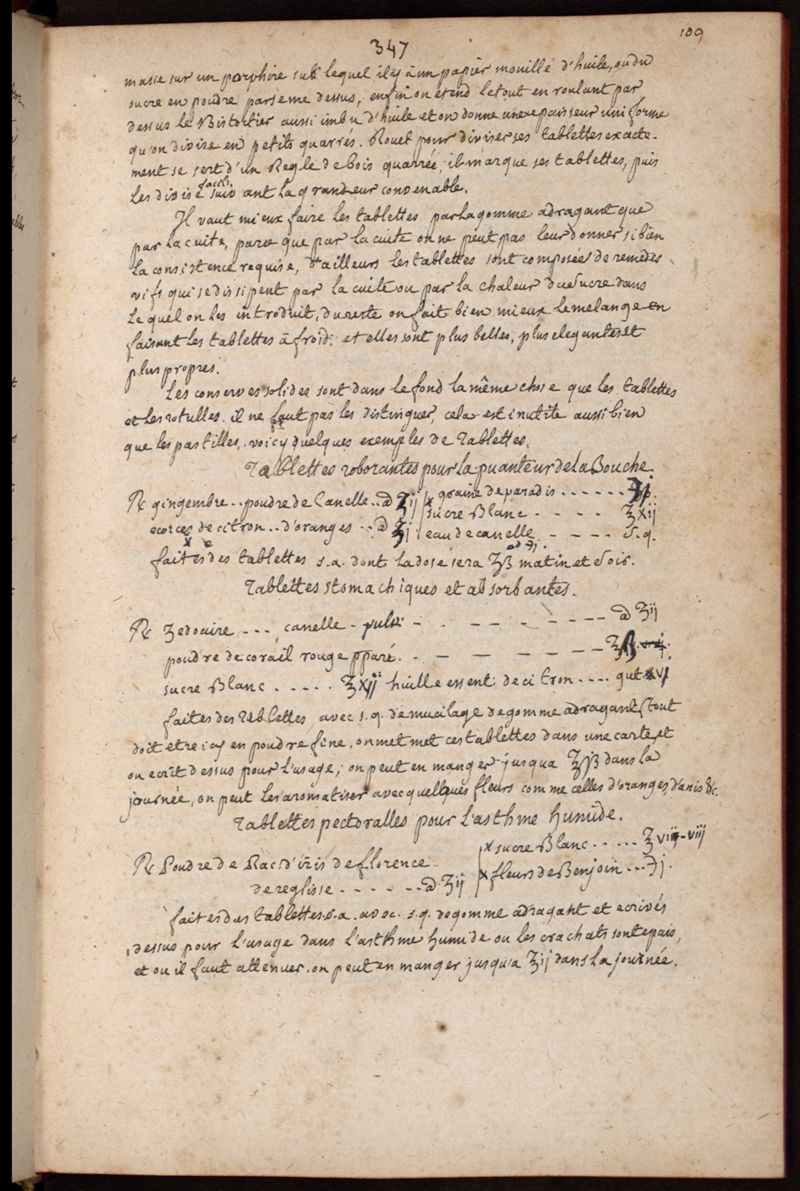 109
347
masse sur un porphire sur lequel il y à un papier mouillé d'huile, ou du
sucre en poudre parseme dessus, enfin on etend le tout en roulant par
dessus le Bistortier aussi imbu d'huile et on donne une epaisseur uniforme
qu'on divise en petits quarrés. Rouel pour diviser ses tablettes exacte-
ment se sert d'un Regle de bois quarrée, il marque ses tablettes, puis
les divise suivant la grandeur convenable.
Il vaut mieux faire les tablettes par la gomme adragant que
par la cuite, parce que par la cuite on ne peut pas leur donner si bien
la consistence requise, d'ailleurs les tablettes sont composées de remedes
vifs qui se dissipent par la cuite ou par la chaleur du sucre dans
le quel on les introduit, du reste on fait bien mieux le melange en
faisant les tablettes à froid: et elles sont plus belles, plus elegantes et
plus propres.
Les conserves solides sont dans le fond la même chose que les tablettes
et les rotulles. il ne faut pas les distinguer, cela est inutile aussi bien
que les pastilles. voicy quelques exemples de Tablettes.
Tablettes roborantes pour la puanteur de la Bouche.
℞ gingembre.. poudre de Canelle.. a ʒij x graine de paradis ......
ecorces de citron.. d'oranges.. a ʒj sucre Blanc - - - - - ℥xij
eau de canelle - - - - s.q.
faites des tablettes s.a. dont la dose sera ʒß matin et soir.
Tablettes stomachiques et absorbantes.
℞ Zedoaire --- canelle - pulv: - - - - - - - - a ʒij
poudre de corail rouge ppparé. - - - - - - - ʒß
sucre Blanc ..... ℥xij huille essent: de citron .... gut xvj
faites des Tablettes avec s.q. de mucilage de gomme adragant. tout
doit etre icy en poudre fine, on met met ces tablettes dans une carte et
on ecrit dessus pour l'usage; on peut en manger jusqua ℥ß dans la
journée, on peut les aromatiser avec quelques fleurs comme celles d'oranges, d'anis &c.
Tablettes pectoralles pour l'asthme humide.
x sucre Blanc ..... ℥vij-viij
℞ Poudre de Rac: d'iris de florence
x fleurs de Benjoin ... ℈j.
de reglisse - - - - - a ʒij
faites des tablettes s.a. avec s.q. de gomme adragant et ecrivés
dessus pour l'usage dans l'asthme humide ou les crachats sont epais,
et ou il faut attenuer. on peut en manger jusqu'a ʒij dans la journée.